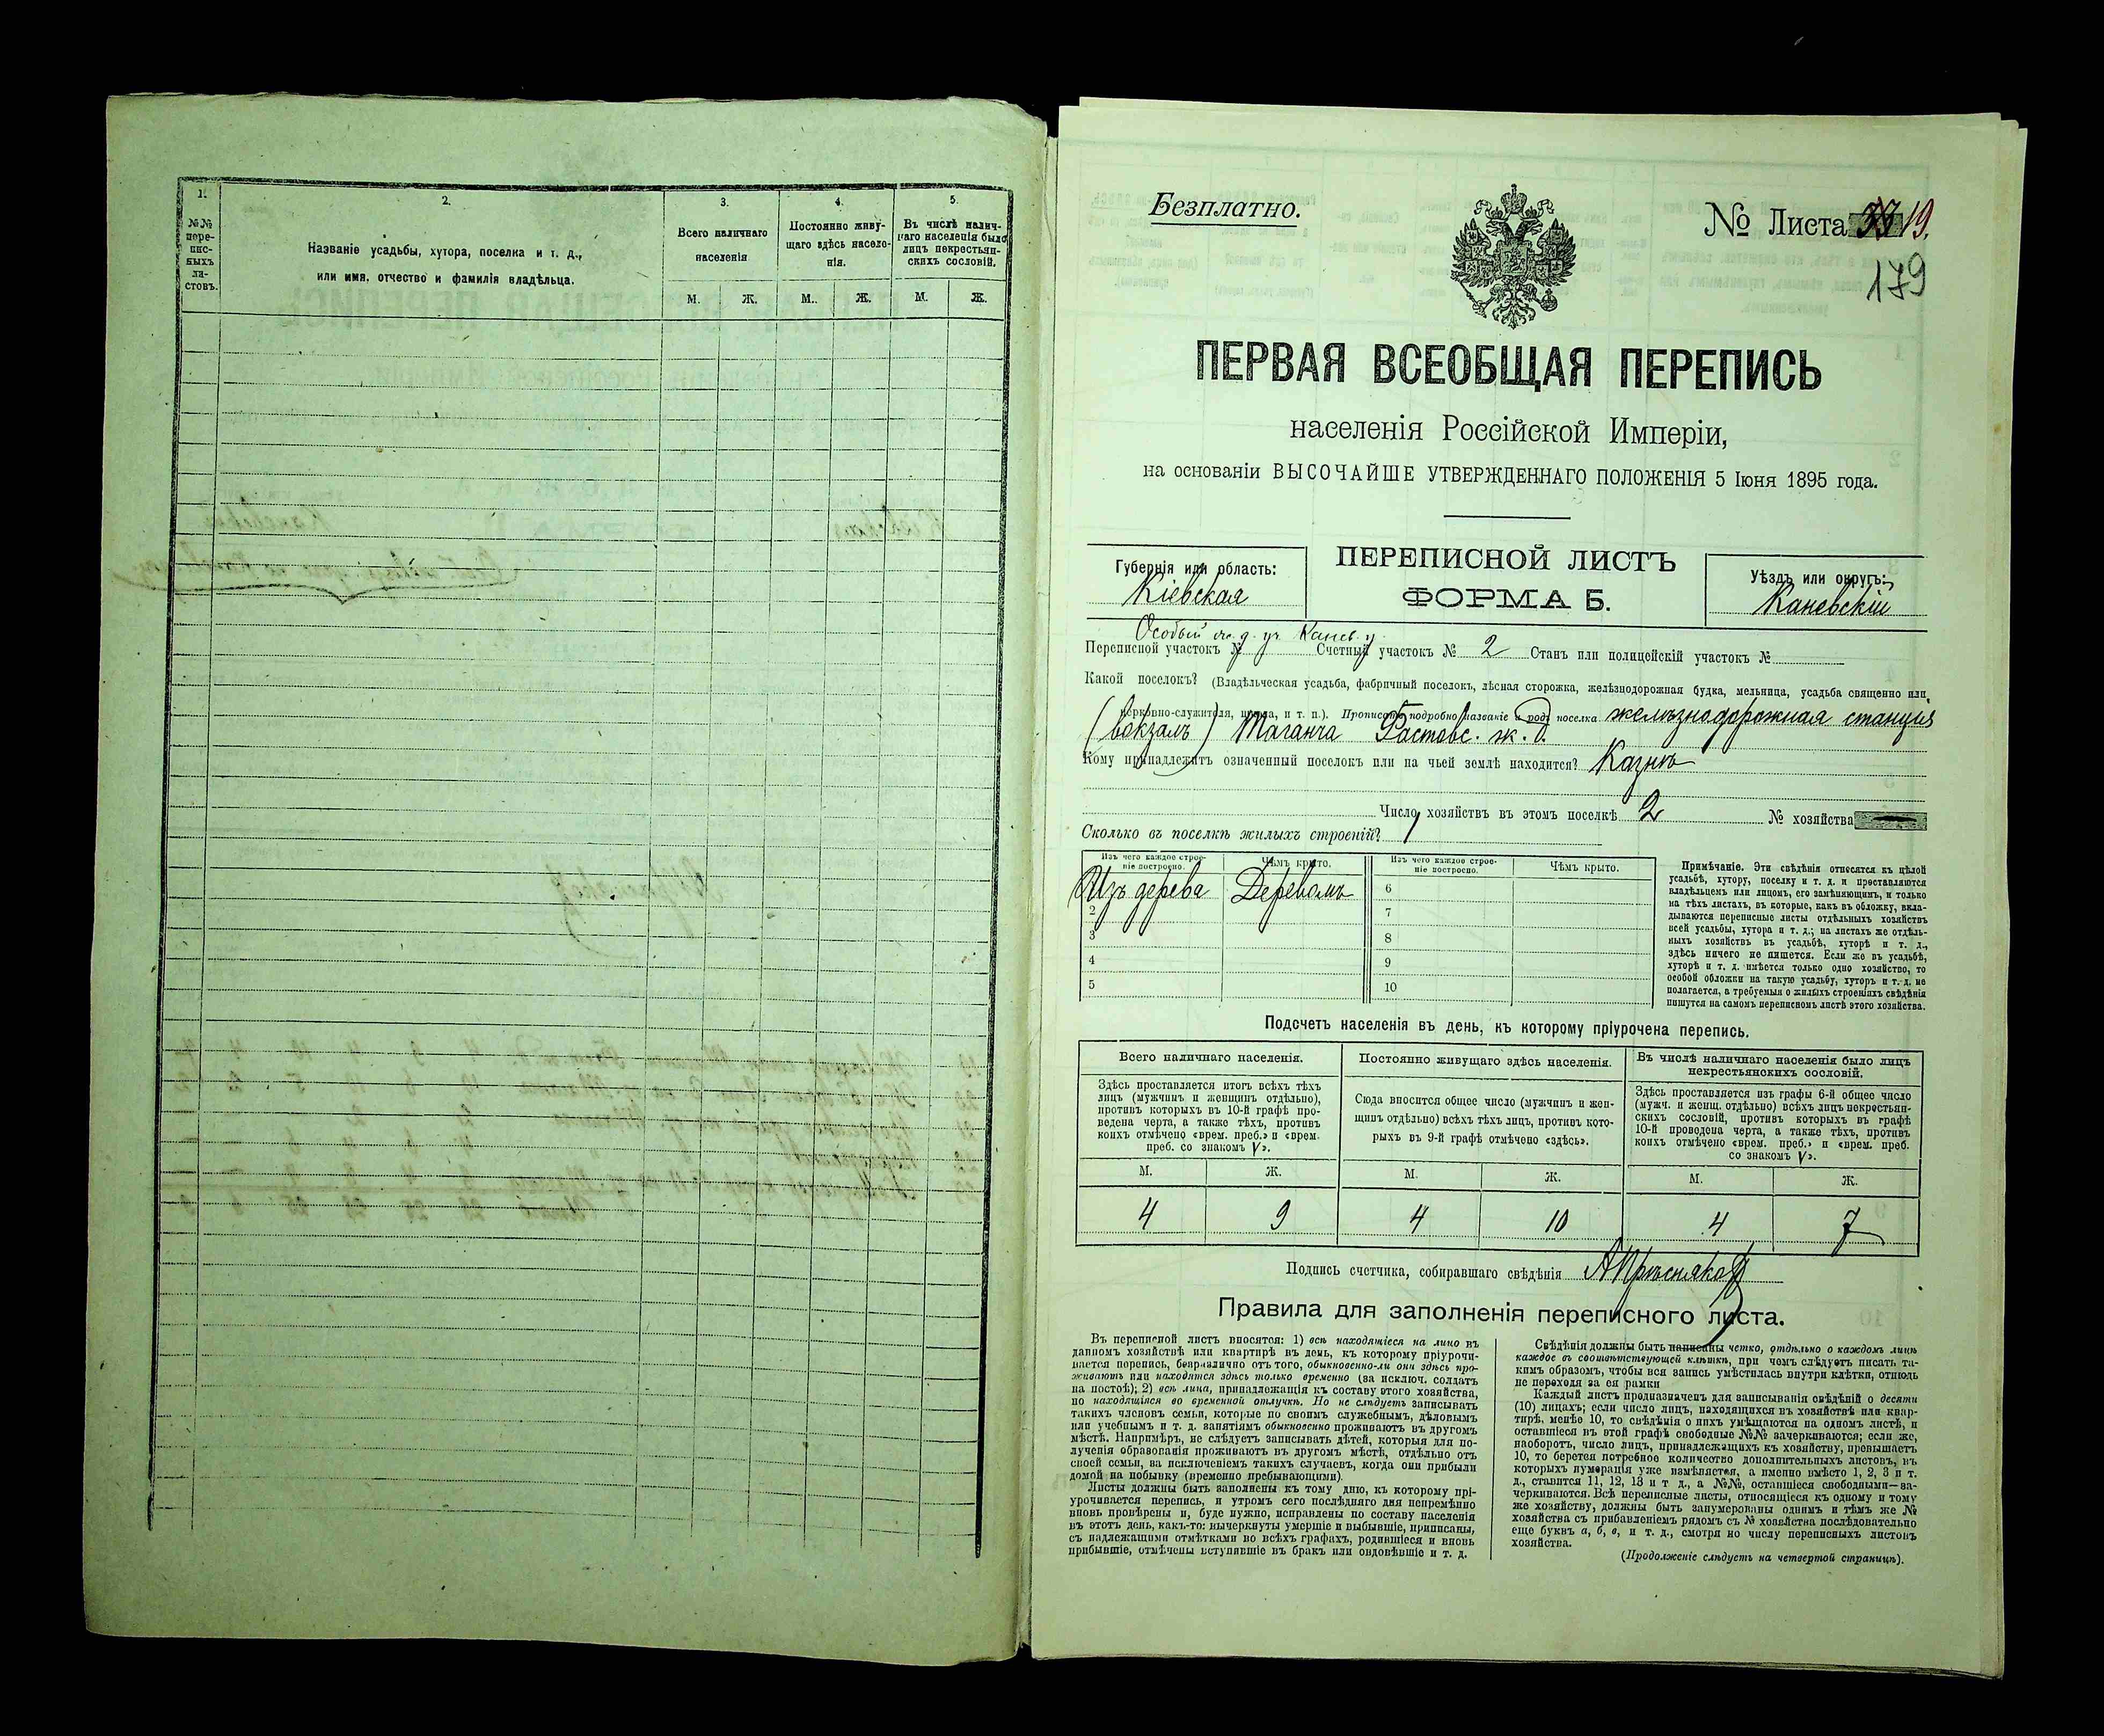 1.
№№ пере-
пис-
ныхъ
ли-
стовъ.
2.
Названіе усадьбы, хутора, поселка и т. д.,
или имя, отчество и фамилія владѣльца.
3.
Всего наличнаго
населенія
М. Ж.
4.
Постоянно живу-
щаго здѣсь населе-
нія.
М. Ж.
5.
Въ числѣ налич-
наго населенія было
лицъ некрестьян-
скихъ сословій.
М. Ж.
Безплатно.
№ Листа 19.
179
ПЕРВАЯ ВСЕОБЩАЯ ПЕРЕПИСЬ
населенія Россійской Имперіи,
на основаніи ВЫСОЧАЙШЕ УТВЕРЖДЕННАГО ПОЛОЖЕНІЯ 5 Іюня 1895 года.
Губернія или область:
Кіевская
ПЕРЕПИСНОЙ ЛИСТЪ
ФОРМА Б.
Уѣздъ или округъ:
Каневскій
Особый уч. Канев. у.
Переписной участокъ № Счетный участокъ № 2 Станъ или полицейскій участокъ №
Какой поселокъ? (Владѣльческая усадьба, фабричный поселокъ, лѣсная сторожка, желѣзнодорожная будка, мельница, усадьба священно или
церковно-служителя, и т. п.). Прописать подробно названіе и родъ поселка желѣзнодорожная станція
(вокзалъ) Таганча Фастовс. ж. д.
Кому принадлежитъ означенный поселокъ или на чьей землѣ находится? Казнѣ
Число хозяйствъ въ этомъ поселкѣ 2 № хозяйства
Сколько въ поселкѣ жилыхъ строеній? 1
Изъ чего каждое строе-
ніе построено.
Чѣмъ крыто.
Изъ чего каждое строе-
ніе построено.
Чѣмъ крыто.
Изъ дерева Деревомъ
2
3
4
5
6
7
8
9
10
Примѣчаніе. Эти свѣдѣнія относятся къ цѣлой
усадьбѣ, хутору, поселку и т. д. и проставляются
владѣльцемъ или лицомъ, его замѣняющимъ, и только
на тѣхъ листахъ, въ которые, какъ въ обложку, вкла-
дываются переписные листы отдѣльныхъ хозяйствъ
всей усадьбы, хутора и т. д.; на листахъ же отдѣль-
ныхъ хозяйствъ въ усадьбѣ, хуторѣ и т. д.,
здѣсь ничего не пишется. Если же въ усадьбѣ,
хуторѣ и т. д. имѣется только одно хозяйство, то
особой обложки на такую усадьбу, хуторъ и т. д. не
полагается, а требуемыя о жилыхъ строеніяхъ свѣдѣнія
пишутся на самомъ переписномъ листѣ этого хозяйства.
Подсчетъ населенія въ день, къ которому пріурочена перепись.
Всего наличнаго населенія.
Здѣсь проставляется итогъ всѣхъ тѣхъ
лицъ (мужчинъ и женщинъ отдѣльно),
противъ которыхъ въ 10-й графѣ про-
ведена черта, а также тѣхъ, противъ
коихъ отмѣчено «врем. преб.» и «врем.
преб. со знакомъ V».
М. Ж.
4 9
Постоянно живущаго здѣсь населенія.
Сюда вносится общее число (мужчинъ и жен-
щинъ отдѣльно) всѣхъ тѣхъ лицъ, противъ кото-
рыхъ въ 9-й графѣ отмѣчено «здѣсь».
М. Ж.
4 10
Въ числѣ наличнаго населенія было лицъ
некрестьянскихъ сословій.
Здѣсь проставляется изъ графы 6-й общее число
(мужч. и женщ. отдѣльно) всѣхъ лицъ некрестьян-
скихъ сословій, противъ которыхъ въ графѣ
10-й проведена черта, а также тѣхъ, противъ
коихъ отмѣчено «врем. преб.» и «врем. преб.
со знакомъ V».
М. Ж.
4 7
Подпись счетчика, собиравшаго свѣдѣнія АПрѣсняков
Правила для заполненія переписного листа.
Въ переписной листъ вносятся: 1) всѣ находящіеся на лицо въ
данномъ хозяйствѣ или квартирѣ въ день, къ которому пріурочи-
вается перепись, безразлично отъ того, обыкновенно-ли они здѣсь про-
живаютъ или находятся здѣсь только временно (за исключ. солдатъ
на постоѣ); 2) всѣ лица, принадлежащія къ составу этого хозяйства,
но находящіяся во временной отлучкѣ. Но не слѣдуетъ записывать
такихъ членовъ семьи, которые по своимъ служебнымъ, дѣловымъ
или учебнымъ и т. д. занятіямъ обыкновенно проживаютъ въ другомъ
мѣстѣ. Напримѣръ, не слѣдуетъ записывать дѣтей, которыя для по-
лученія образованія проживаютъ въ другомъ мѣстѣ, отдѣльно отъ
своей семьи, за исключеніемъ такихъ случаевъ, когда они прибыли
домой на побывку (временно пребывающими).
Листы должны быть заполнены къ тому дню, къ которому прі-
урочивается перепись, и утромъ сего послѣдняго дня непремѣнно
вновь провѣрены и, буде нужно, исправлены по составу населенія
въ этотъ день, какъ-то: вычеркнуты умершіе и выбывшіе, приписаны,
съ надлежащими отмѣтками во всѣхъ графахъ, родившіеся и вновь
прибывшіе, отмѣчены вступившіе въ бракъ или овдовѣвшіе и т. д.
Свѣдѣнія должны быть написаны четко, отдѣльно о каждомъ лицѣ
каждое въ соотвѣтствующей клѣткѣ, при чемъ слѣдуетъ писать та-
кимъ образомъ, чтобы вся запись умѣстилась внутри клѣтки, отнюдь
не переходя за ея рамки
Каждый листъ предназначенъ для записыванія свѣдѣній о десяти
(10) лицахъ; если число лицъ, находящихся въ хозяйствѣ или квар-
тирѣ, менѣе 10, то свѣдѣнія о нихъ умѣщаются на одномъ листѣ, и
оставшіеся въ этой графѣ свободные №№ зачеркиваются; если же,
наоборотъ, число лицъ, принадлежащихъ къ хозяйству, превышаетъ
10, то берется потребное количество дополнительныхъ листовъ, въ
которыхъ нумерація уже измѣняется, а именно вмѣсто 1, 2, 3 и т.
д., ставится 11, 12, 13 и т д., а №№, оставшіеся свободными—за-
черкиваются. Всѣ переписные листы, относящіеся къ одному и тому
же хозяйству, должны быть занумерованы однимъ и тѣмъ же №
хозяйства съ прибавленіемъ рядомъ съ № хозяйства послѣдовательно
еще буквъ а, б, в, и т. д., смотря по числу переписныхъ листовъ
хозяйства.
(Продолженіе слѣдуетъ на четвертой страницѣ).